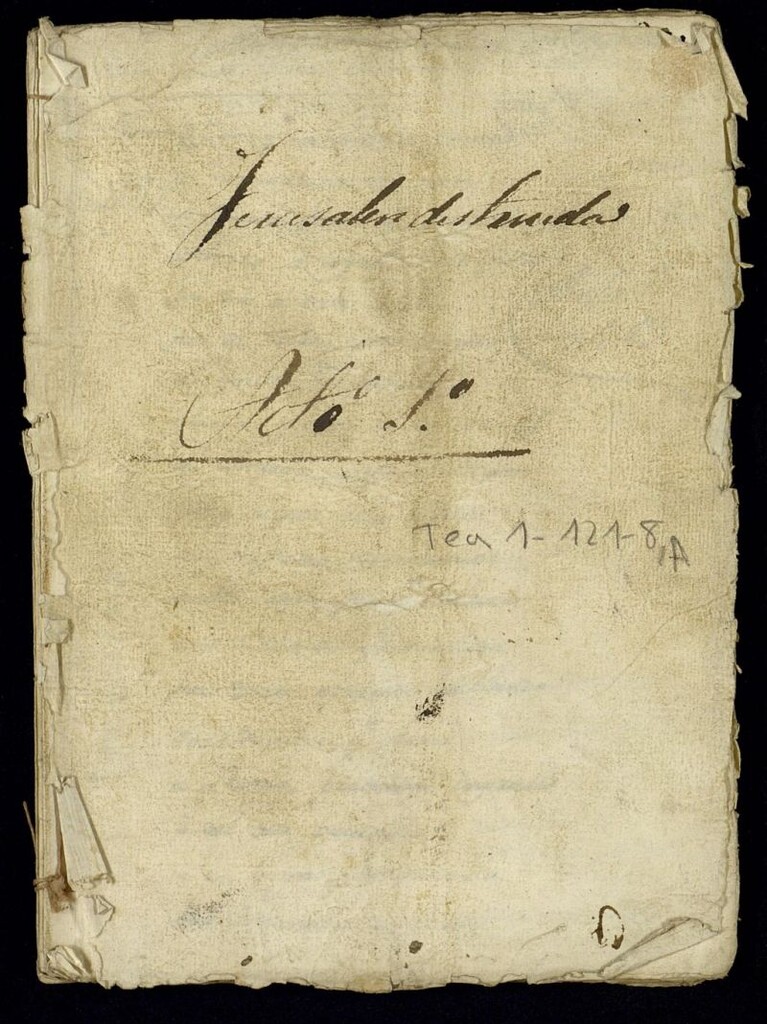 Jerusalen destruida
Acto 1.º
Tea 1-121-8, A